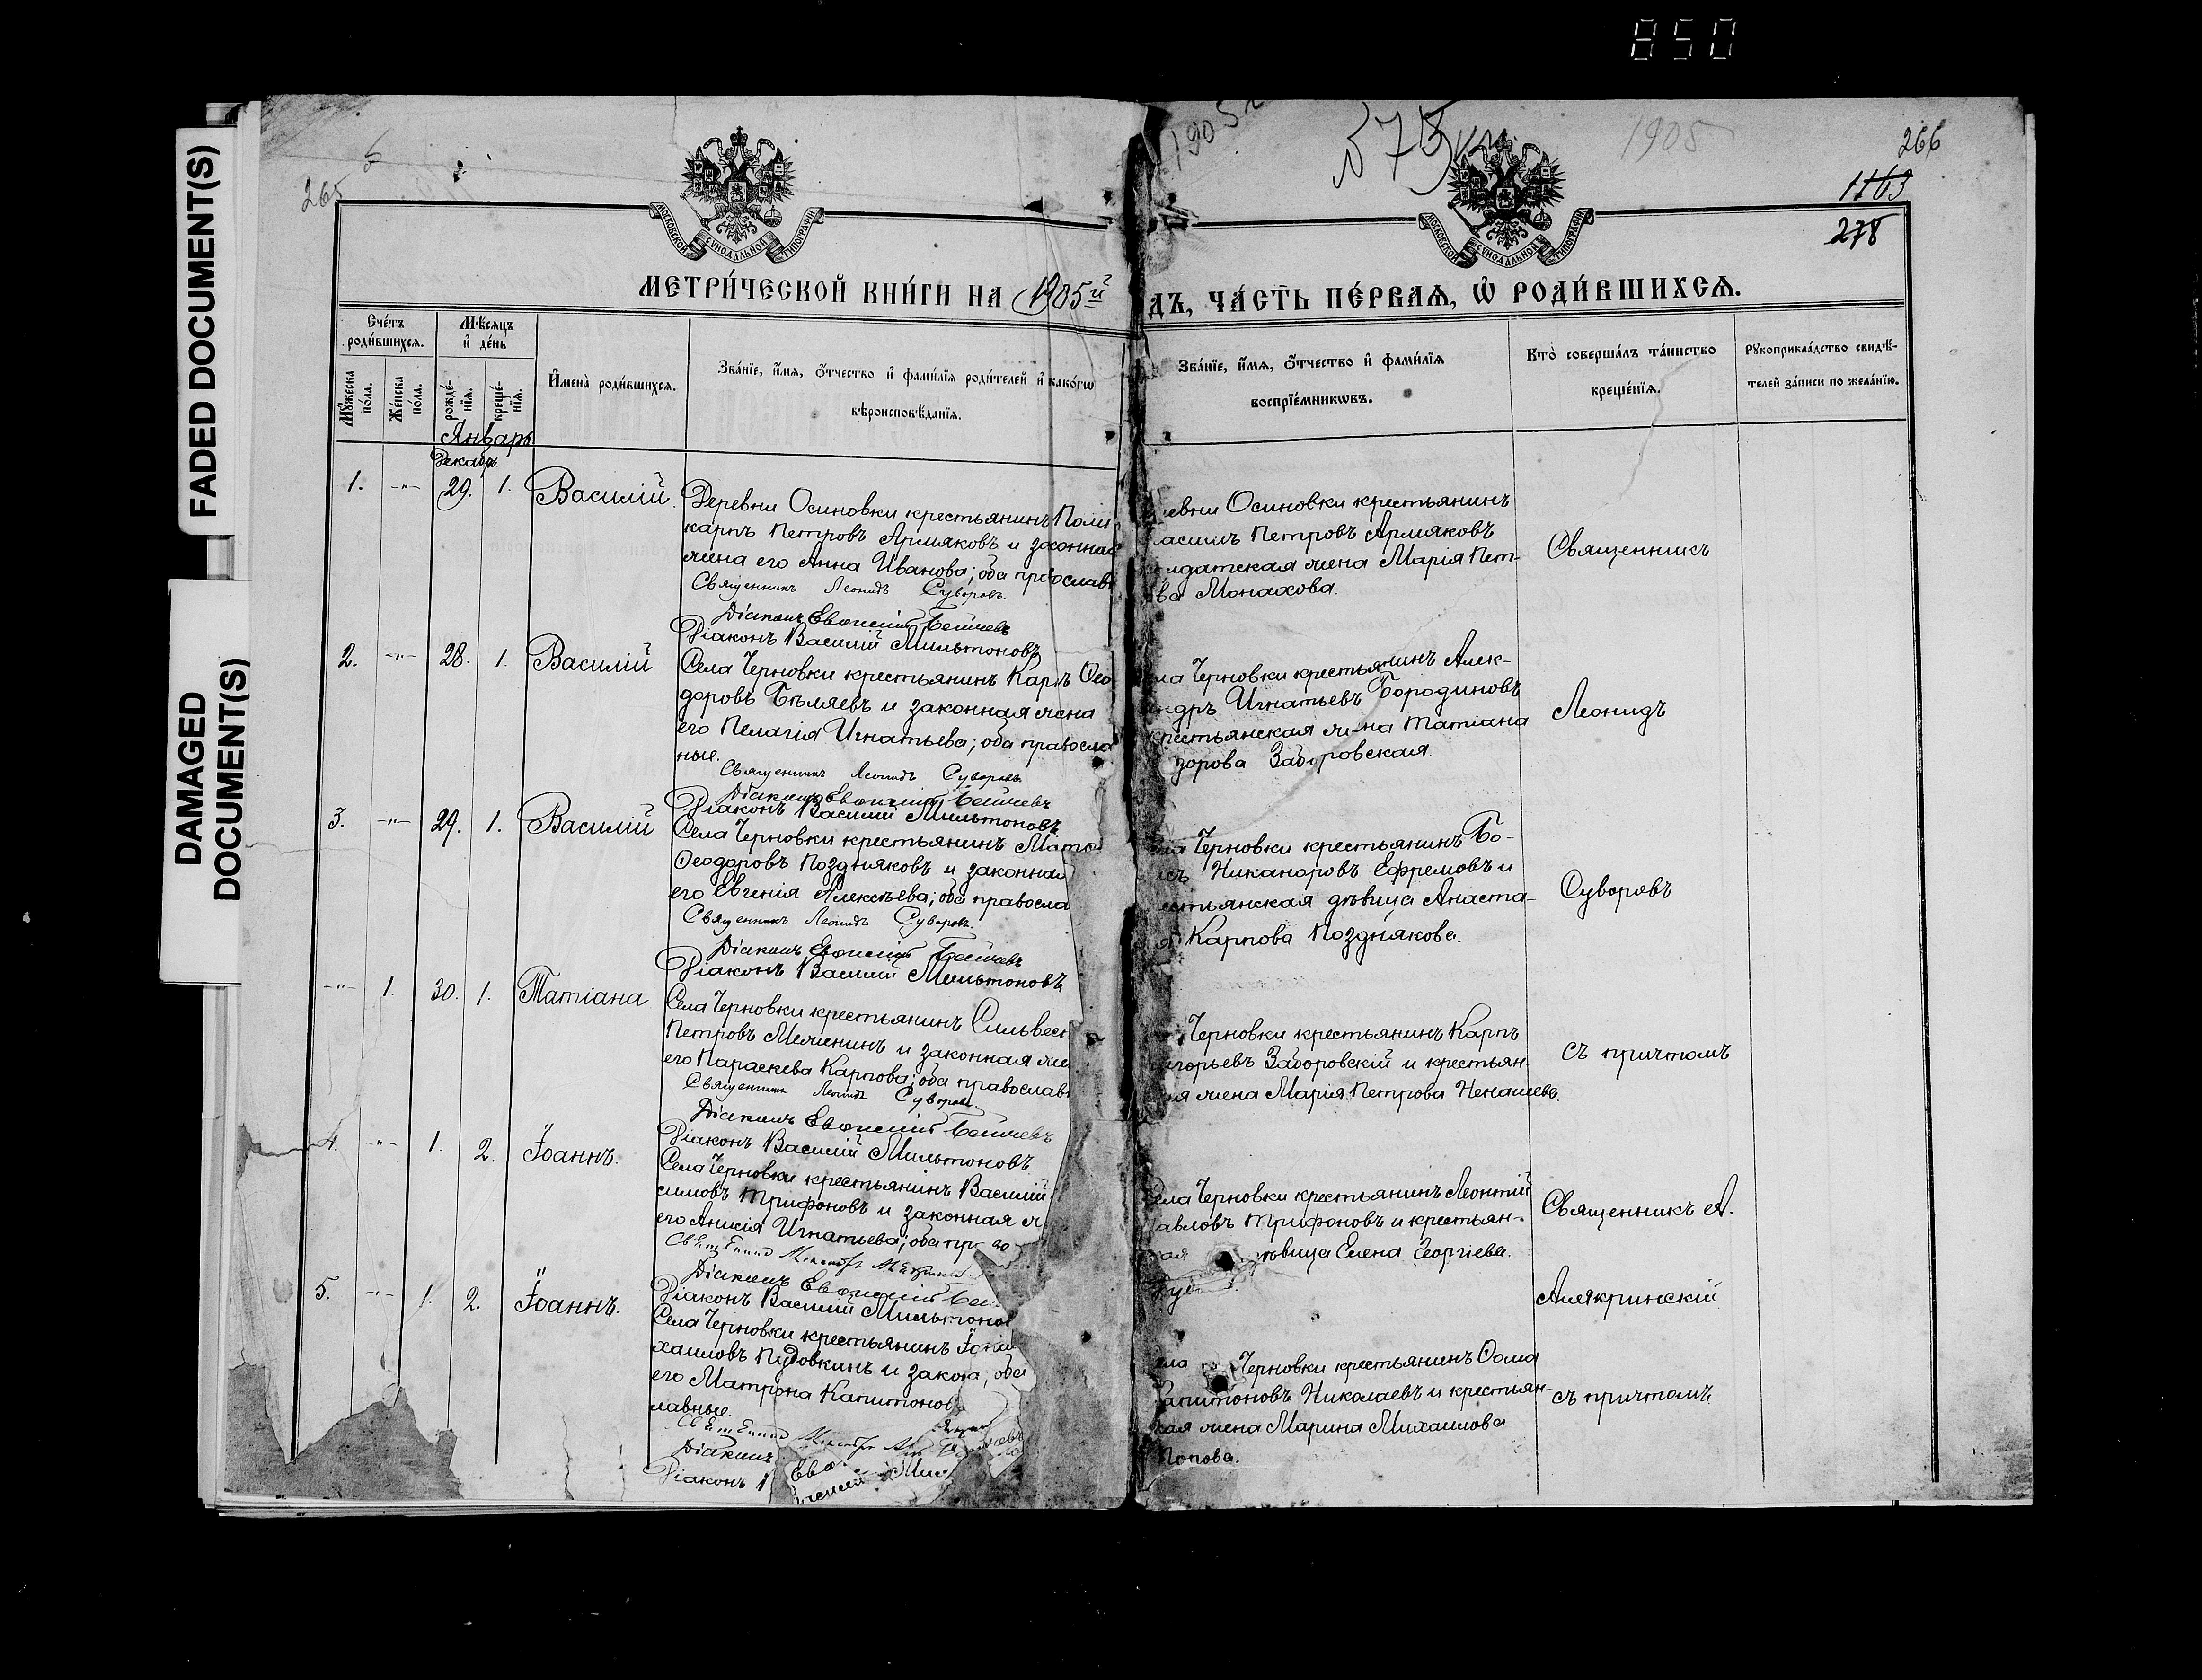 850
FADED DOCUMENT(S)
DAMAGED
DOCUMENT(S)
265
1905
266
1163
278
МОСКОВСКОЙ СѴНОДАЛЬНОЙ ТИПОГРАФІИ
МОСКОВСКОЙ СѴНОДАЛЬНОЙ ТИПОГРАФІИ
МЕТРИ́ЧЕСКОЙ КНИ́ГИ НА 1905й
ДЪ, ЧА́СТЬ ПЕ́РВАѦ, Ѡ РОДИ́ВШИХСѦ.
Сче́тъ
роди́вшихсѧ.
Мѣ́сѧцъ
и де́нь
Мꙋ́жеска
по́ла.
Же́нска
по́ла.
рожде́-
нїѧ.
креще́-
нїѧ.
Имена̀ роди́вшихсѧ.
Зва́нїе, и́мѧ, ѻ́тчество и фами́лїѧ роди́телей и како́гѡ
вѣроисповѣ́данїѧ.
Зва́нїе, и́мѧ, ѻ́тчество и фами́лїѧ
воспрїе́мникѡвъ.
Кто̀ соверша́лъ та́инство
креще́нїѧ.
Рꙋкоприкла́дство свидѣ́-
телей за́писи по жела́нїю.
Январь
Декабр
1. -"- 29. 1. Василій.
Деревни Осиновки крестьянинъ Поли
карпъ Петровъ Армяковъ и законная
жена его Анна Иванова; оба православ
Священникъ Леонидъ Суворовъ.
Діаконъ
Діаконъ Василій Мильтоновъ
евни Осиновки крестьянинъ
Петровъ Армяковъ
лдатская жена Марія Пет-
ва Монахова.
Священникъ
2. -"- 28. 1. Василій
Села Черновки крестьянинъ Карпъ Ѳео
доровъ Бѣляевъ и законная жена
его Пелагія Игнатьева; оба правосла
ные.
Священникъ Леонидъ Суворовъ
Діаконъ
Діаконъ Василій Мильтоновъ
ла Черновки крестьянинъ Алек-
ндръ Игнатьевъ Бородиновъ
крестьянская жена Татіана
дорова Заборовская.
Леонидъ
3. -"- 29. 1. Василій
Села Черновки крестьянинъ
Ѳеодоровъ Поздняковъ и законная
его Евгенія Алексѣева; оба правосла
Священникъ Леонидъ Суворовъ.
Діаконъ
Діаконъ Василій Мильтоновъ
Черновки крестьянинъ Бо-
съ Никаноровъ Ефремовъ и
стьянская дѣвица Анаста-
Карпова Позднякова.
Суворовъ
-"- 1. 30. 1. Татіана
Села Черновки крестьянинъ Сильвес
Петровъ и законная же
его Параскева Карпова; оба православ
Священникъ Леонидъ Суворовъ.
Діаконъ
Діаконъ Василій Мильтоновъ.
Черновки крестьянинъ Карпъ
игорьевъ Заборовскій и крестьян
ая жена Марія Петрова Ненашева.
съ причтомъ
4. -"- 1. 2. Іоаннъ.
Села Черновки крестьянинъ Василій
симовъ Трифоновъ и законная ж
его Анисія Игнатьева; оба
Діаконъ
Діаконъ Василій Мильтонов
ела Черновки крестьянинъ Леонтій
авловъ Трифоновъ и крестьян-
кая дѣвица Елена Георгіева.
Священникъ А.
5. -"- 1. 2. Іоаннъ.
Села Черновки крестьянинъ
хаиловъ Пудовкинъ и
его Матрона Капитонов
лавные.
Діаконъ
Діаконъ
ела Черновки крестьянинъ Ѳома
апитоновъ Николаевъ и крестьян-
кая жена Марина Михаилова
Попова.
Алякринскій
съ причтомъ